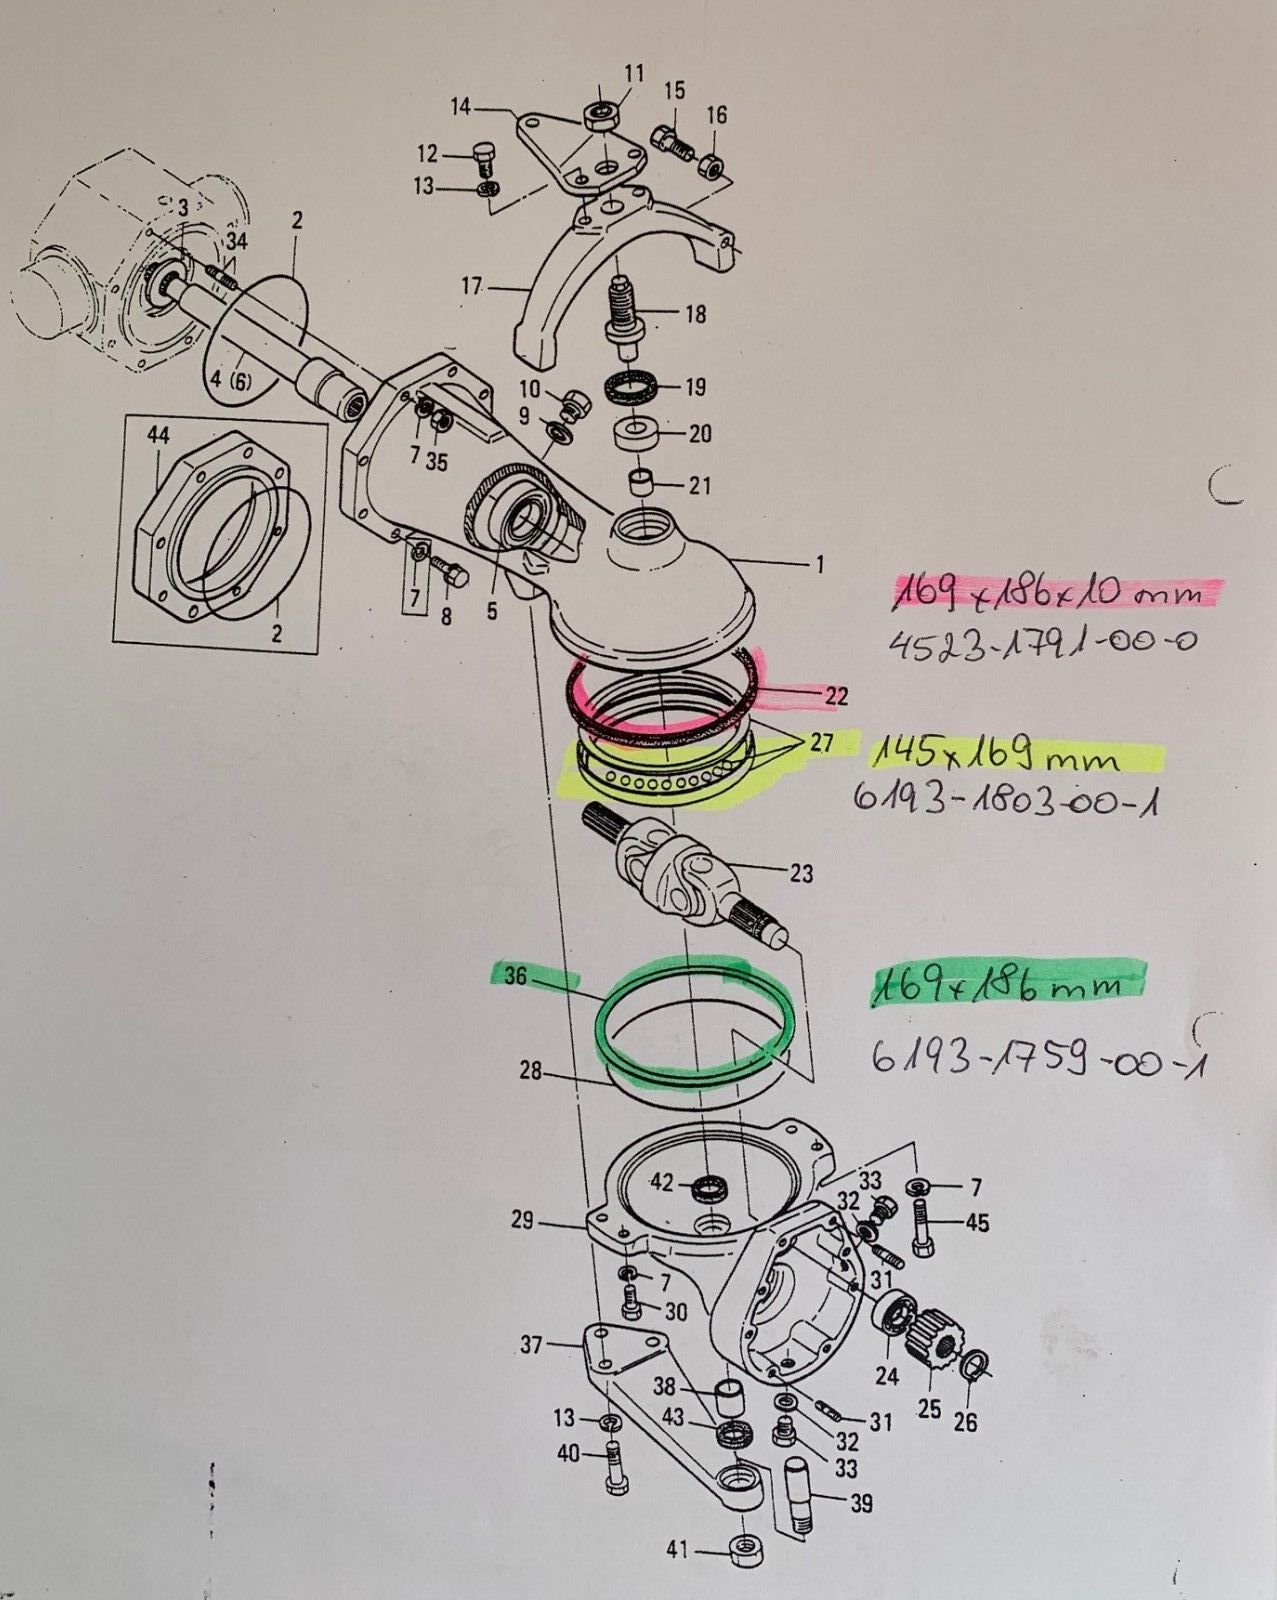 11
14
15
16
12
13
3
34
2
17
18
4 (6)
10
19
9
20
44
7
35
21
1
7
8
5
2
169 x 186 x 10 mm
4523-1791-00-0
22
27
145 x 169 mm
6193-1803-00-1
23
36
169 x 186 mm
28
6193-1759-00-1
42
33
7
32
29
45
31
7
30
37
24
38
25
26
13
43
31
40
32
33
39
41